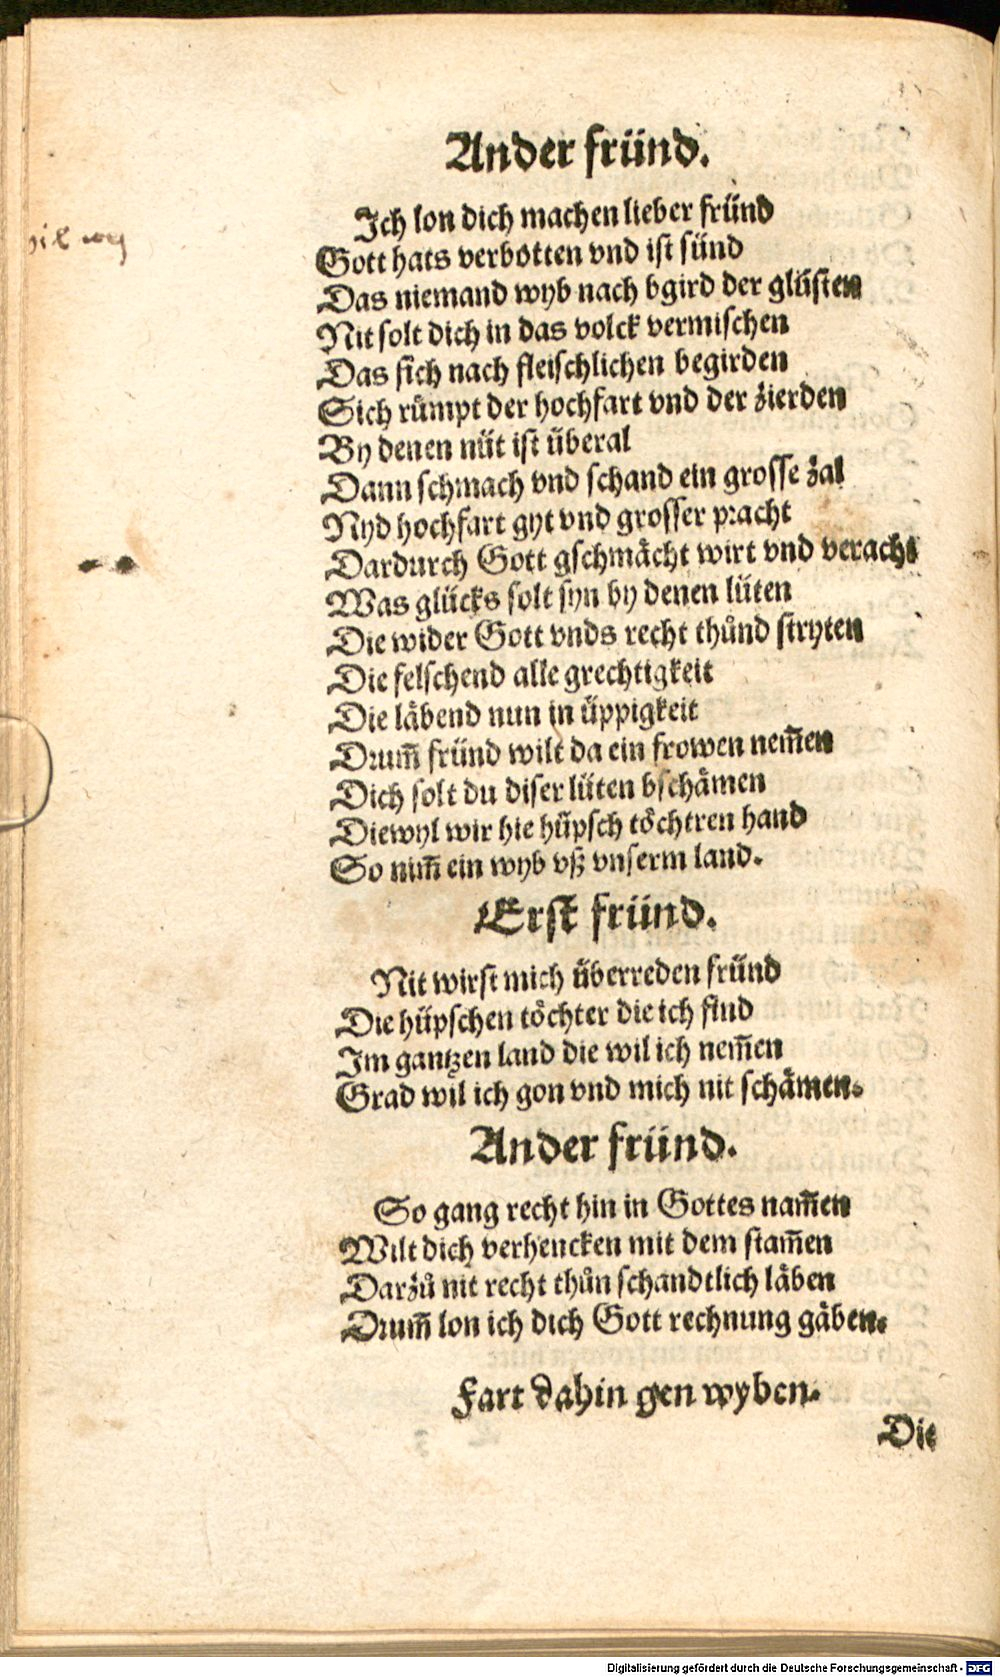 Ander fründ.
Ich lon dich machen lieber fründ
Gott hats verbotten vnd ist sünd
Das niemand wyb nach bgird der glüsten
Nit solt dich in das volck vermischen
Das sich nach fleischlichen begirden
Sich rümpt der hochfart vnd der zierden
By denen nüt ist überal
Dann schmach vnd schand ein grosse zal
Nyd hochfart gyt vnd grosser pracht
Dardurch Gott gschmächt wirt vnd veracht
Was glücks solt syn by denen lüten
Die wider Gott vnds recht thůnd stryten
Die felschend alle grechtigkeit
Die läbend nun in üppigkeit
Drum̄ fründ wilt da ein frowen nem̄en
Dich solt du diser lüten bschämen
Diewyl wir hie hüpsch töchtren hand
So nim̄ ein wyb vß vnserm land.
Erst fründ.
Nit wirst mich überreden fründ
Die hüpschen töchter die ich find
Im gantzen land die wil ich nem̄en
Grad wil ich gon vnd mich nit schämen.
Ander fründ.
So gang recht hin in Gottes nam̄en
Wilt dich verhencken mit dem stam̄en
Darzů nit recht thůn schandtlich läben
Drum̄ lon ich dich Gott rechnung gäben.
Fart dahin gen wyben.
Die
Digitalisierung gefördert durch die Deutsche Forschungsgemeinschaft - DFG